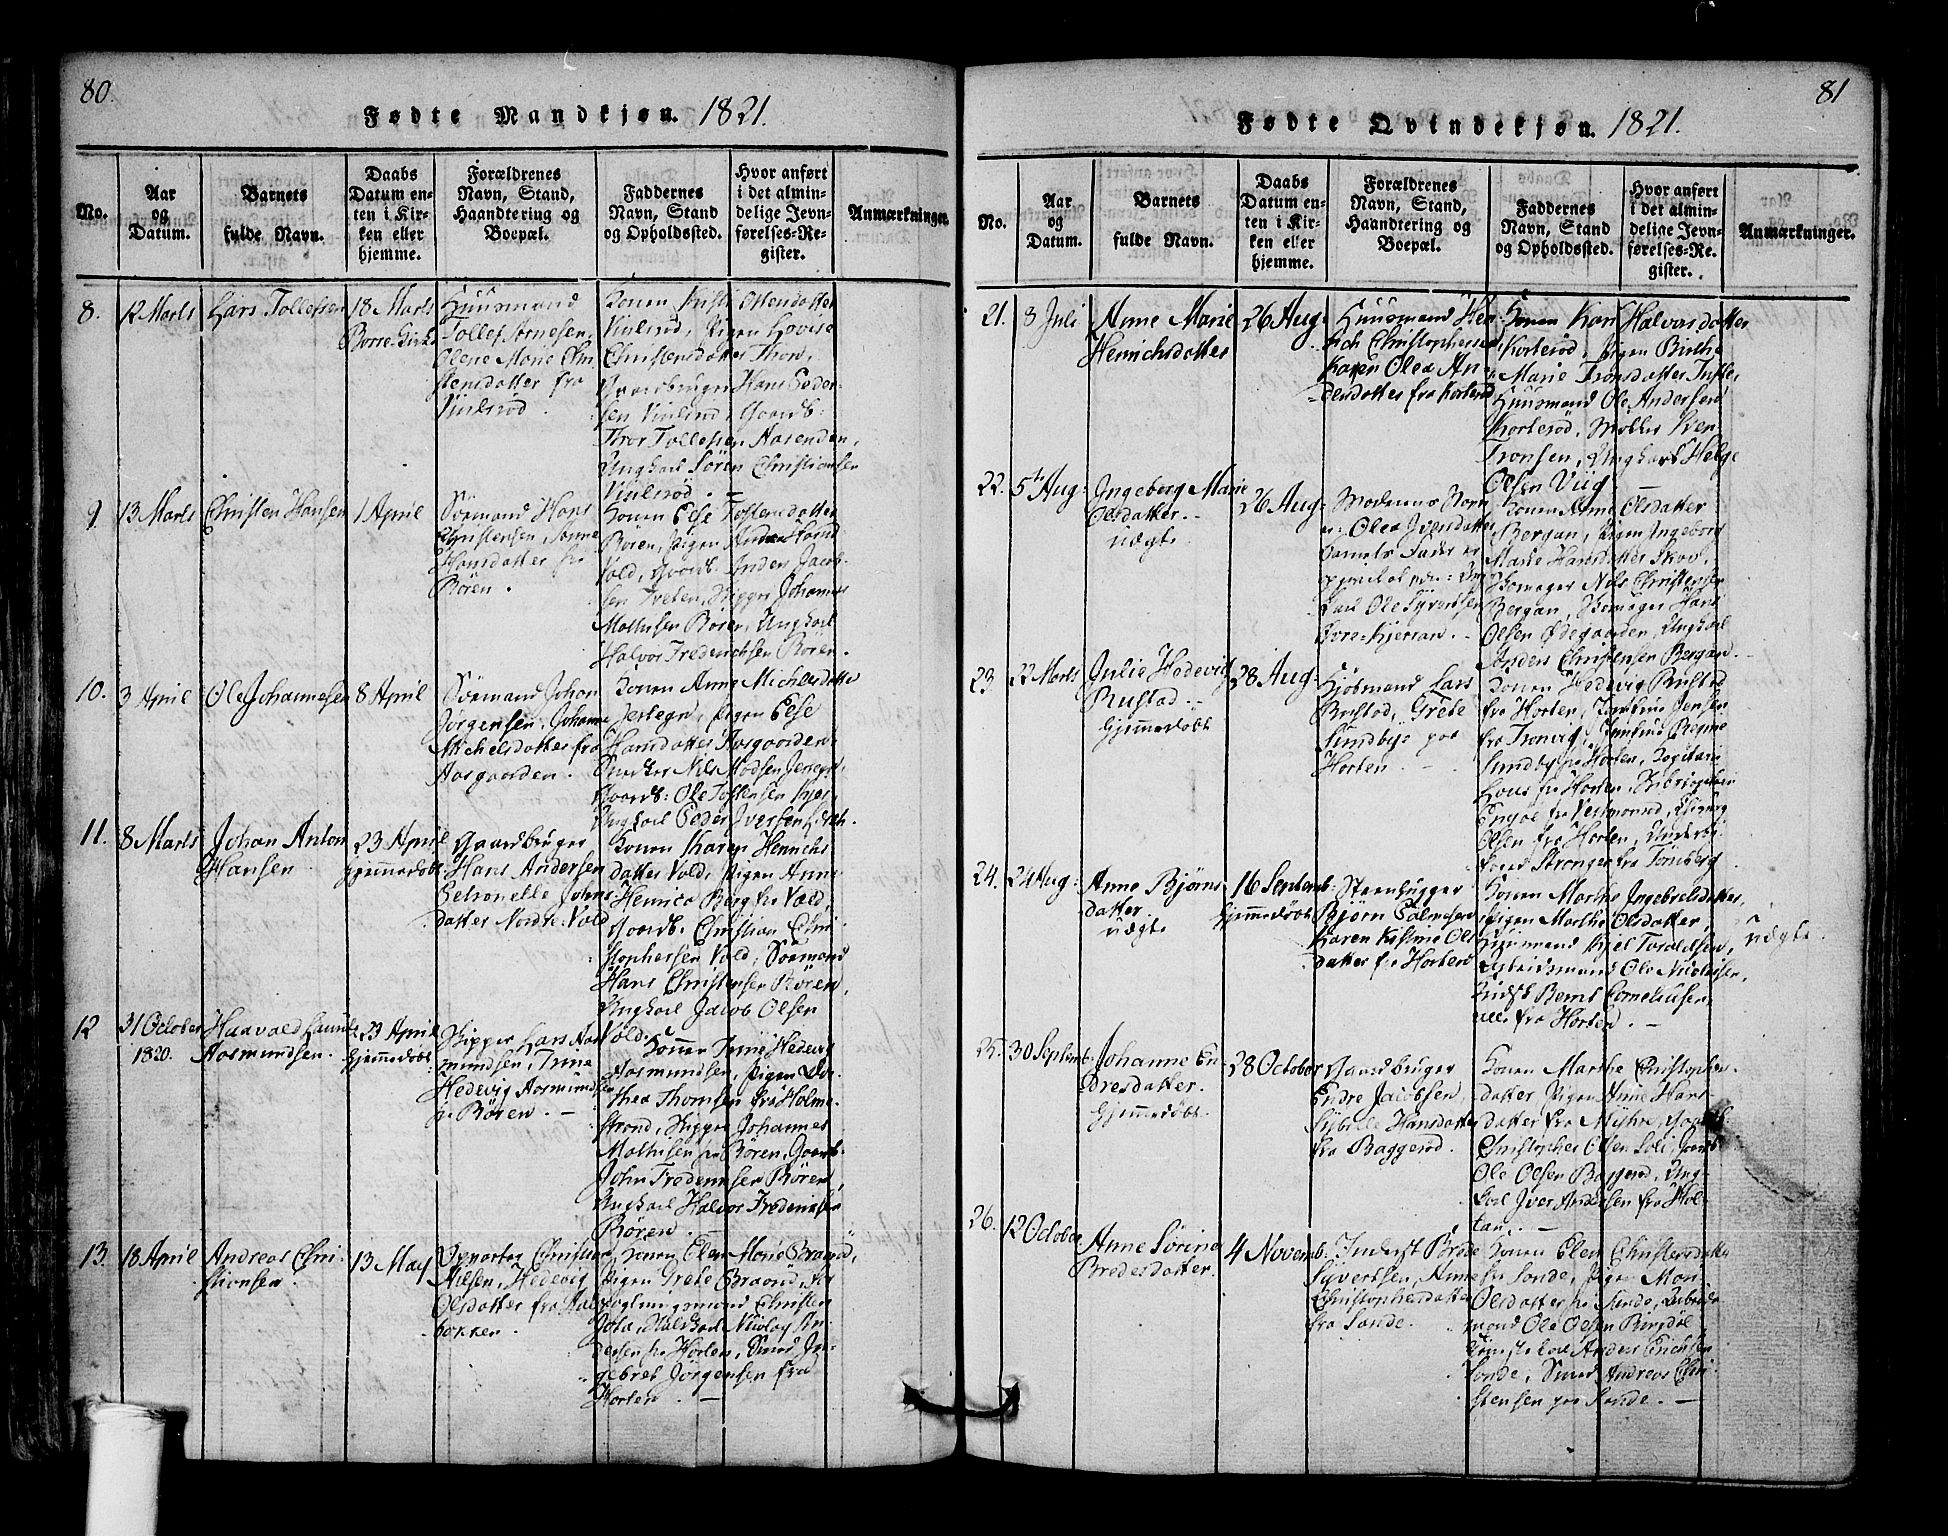 80.
Fødte Mandkjøn. 1821.
No.
Aar
og
Datum.
Barnets
fulde Navn.
Daabs
Datum en-
ten i Kir-
ken eller
hjemme.
Forældrenes
Navn, Stand,
Haandtering og
Boepæl.
Faddernes
Navn, Stand
og Opholdssted.
Hvor anført
i det almin-
delige Jevn-
førelses-Re-
gister.
Anmærkninger.
8.
12 Marts
Lars Tollefsen
18 Marts
Borre Kirke
Huusmand
Tollef Arnesen,
Olene Marie Chri
stensdatter fra
Viulsrød
Konen Kirsti Ottersdatter
Viulsrud, Pigen Lovise
Christensdatter Thon,
Gaardbruger Hans Peder-
sen Viulsrud, Gaardb:
Thor Tollefsen Aasenden,
Ungkarl Sören Christiansen
Viulsrød
9.
13 Marts
Christen Hansen
1 April
Sømand Hans
Christensen, Anne
Hansdatter fra
Røren.
Konen Else Tostensdatter
Røren, Pigen Andrea
Vold, Gaardb. Anders Jacob-
sen Tveten, Skipper Johannes
Mathisen Røren, Ungkarl
Halvor Frederichsen Røren.
10.
3 April
Ole Johannesen
8 April
Sømand Johan
Jørgensen, Johanne
Michelsdatter fra
Aasgaarden.
Konen Anne Michelsdatter
Jersegn, Pigen Else
Hansdatter Aasgaarden,
Snedker Nils Madsen Jersegn,
Gaardb: Ole Tostensen
Ungkarl Peder Iversen
11.
8 Marts
Johan Anton
Hansen
23 April
hjemmedøbt
Gaardbruger
Hans Andersen
Petronelle Johns
datter Nordre Vold
Konen Maren Henrichs
datter Vold, Pigen Anne
Henrica Berg fra Vold,
Gaardb. Christian Chri
stophersen Vold, Sømand
Hans Christensen Røren,
Ungkarl Jacob Olsen
Vold.
12
31 October
1820.
Haavald
Aasmundsen.
23 April
hjemmedøbt
Skipper Lars Aas
mundsen, Anne
Hedevig Aasmundsen
fra Røren.
Konen Anne Hedevig
Aasmundsen, Pigen Do-
thea Thomsen fra Holme-
strand, Skipper Johannes
Mathisen fra Røren, Gaardb:
John Fredericksen Røren,
Ungkarl Halvor Fredericksen
Røren
13.
18 April
Andreas Chri
stiansen
13 May
Christian
Nilsen, Hedevig
Olsdatter fra Aal
bakken
Konen Elen Marie Braarud,
Pigen Grete Braarud,
Christen
Nicolay An
dersen fra Horten, Smed In-
gebret Jørgensen fra
Horten
81
Fødte Qvindekjøn. 1821.
No.
Aar
og
Datum.
Barnets
fulde Navn.
Daabs
Datum en-
ten i Kir-
ken eller
hjemme.
Forældrenes
Navn, Stand,
Haandtering og
Boepæl.
Faddernes
Navn, Stand
og Opholdssted.
Hvor anført
i det almin-
delige Jevn-
førelses-Re-
gister.
Anmærkninger.
21.
8 Juli
Anne Marie
Henrichsdatter
26 Aug:
Huusmand Hen
rich Christophersen
Karen Olea An
dersdatter fra Korterød
Konen Kari Halvorsdatter
Korterød, Pigen Birthe
Marie Tronsdatter
Huusmand Ole Andersen
Korterød, Møller Iver
Tronsen, Ungkarl Helge
Olsen Viig
22.
5te Aug:
Ingeborg Marie
Olsdatter.
uægte
26 Aug:
Moderens Navn
er Olea Iversdatter
Barnets Fader er
Karl Ole Syvertsen
Konen Anne Olsdatter
Bergan, Pigen Ingeborg
Marie Hansdatter Skov,
Skomager Nils Christensen
Bergan, Skomager Hans
Olsen Ødegaarden, Ungkarl
Anders Christensen Bergan.
23.
22 Marts
Julie Hedevig
Rustad
hjemmedøbt
28 Aug:
Kjøbmand Lars
Rustad, Grete
Sundbye paa
Horten.
Konen Hedevig Rustad
fra Horten, Jomfrue Jensen
fra Tronvig, Jomfrue Regine
Sundby fra Horten,
Olsen fra Horten,
fra Tønsberg
24.
24 Aug:
Anne Bjørns
datter
uægte
16 Septemb:
hjemmedøbt
Steenhugger
Bjørn Palmesen
Karen Kistine Ols
datter fra Horten
Konen Marthe Ingebretsdatter,
Pigen Marthe Olsdatter,
Huusmand Kjel Toraldsen,
Arbeidsmand Ole Nicolaisen,
Inderst Bernt Cornelius­sen,
alle fra Horten.
uægte
25.
30 Septemb:
Johanne En-
dresdatter.
hjemmedøbt.
28 October
Gaardbruger
Endre Jacobsen,
Sybille Hansdatter
fra Baggerød.
Konen Marthe Christophers
datter, Pigen Anne Hans-
datter fra Myhre, Gaardb
Christopher Olsen Soli, Gaardb
Ole Olsen Baggerød, Ung-
karl Iver Andersen fra Hol-
tan.
26.
12 October
Anne Sørine
Bredesdatter.
4 Novemb:
Inderst Brede
Syvertsen, Anne
Christophersdatter
fra Sande.
Konen Elen Christensdatter
fra Sande, Pigen Mari
Olsdatter fra Sande, Arbeids
mand Ole Olsen Ringdal
Karl Anders Erichsen
Sande, Smed Andreas Chri
stensen paa Sande.